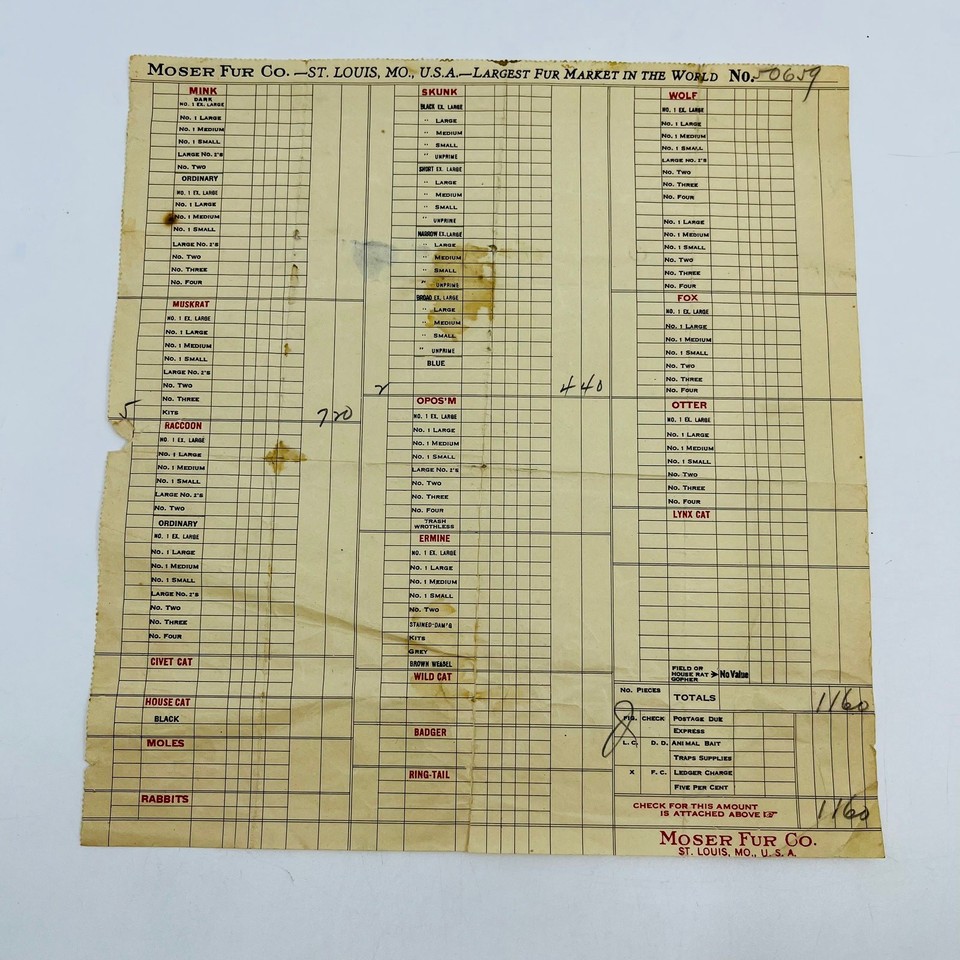 MOSER FUR CO. —ST. LOUIS, MO., U.S.A.—LARGEST FUR MARKET IN THE WORLD No. 50659
MINK
DARK
NO. 1 EX. LARGE
NO. 1 LARGE
NO. 1 MEDIUM
NO. 1 SMALL
LARGE NO. 2'S
NO. TWO
ORDINARY
NO. 1 EX. LARGE
NO. 1 LARGE
NO. 1 MEDIUM
NO. 1 SMALL
LARGE NO. 2'S
NO. TWO
NO. THREE
NO. FOUR
MUSKRAT
NO. 1 EX. LARGE
NO. 1 LARGE
NO. 1 MEDIUM
NO. 1 SMALL
LARGE NO. 2'S
NO. TWO
NO. THREE
5 KITS 720
RACCOON
NO. 1 EX. LARGE
NO. 1 LARGE
NO. 1 MEDIUM
NO. 1 SMALL
LARGE NO. 2'S
NO. TWO
ORDINARY
NO. 1 EX. LARGE
NO. 1 LARGE
NO. 1 MEDIUM
NO. 1 SMALL
LARGE NO. 2'S
NO. TWO
NO. THREE
NO. FOUR
CIVET CAT
HOUSE CAT
BLACK
MOLES
RABBITS
SKUNK
BLACK EX. LARGE
" LARGE
" MEDIUM
" SMALL
" UNPRIME
SHORT EX. LARGE
" LARGE
" MEDIUM
" SMALL
" UNPRIME
NARROW EX. LARGE
" LARGE
" MEDIUM
" SMALL
" UNPRIME
BROAD EX. LARGE
" LARGE
" MEDIUM
" SMALL
" UNPRIME
BLUE
2 440
OPOS'M
NO. 1 EX. LARGE
NO. 1 LARGE
NO. 1 MEDIUM
NO. 1 SMALL
LARGE NO. 2'S
NO. TWO
NO. THREE
NO. FOUR
TRASH
WROTHLESS
ERMINE
NO. 1 EX. LARGE
NO. 1 LARGE
NO. 1 MEDIUM
NO. 1 SMALL
NO. TWO
STAINED-DAM'G
KITS
GREY
BROWN WEASEL
WILD CAT
BADGER
RING-TAIL
WOLF
NO. 1 EX. LARGE
NO. 1 LARGE
NO. 1 MEDIUM
NO. 1 SMALL
LARGE NO. 2'S
NO. TWO
NO. THREE
NO. FOUR
NO. 1 LARGE
NO. 1 MEDIUM
NO. 1 SMALL
NO. TWO
NO. THREE
NO. FOUR
FOX
NO. 1 EX. LARGE
NO. 1 LARGE
NO. 1 MEDIUM
NO. 1 SMALL
NO. TWO
NO. THREE
NO. FOUR
OTTER
NO. 1 EX. LARGE
NO. 1 LARGE
NO. 1 MEDIUM
NO. 1 SMALL
NO. TWO
NO. THREE
NO. FOUR
LYNX CAT
FIELD OR
HOUSE RAT No Value
GOPHER
NO. PIECES TOTALS 1160
FIG. CHECK POSTAGE DUE
EXPRESS
L. C. D. D. ANIMAL BAIT
TRAPS SUPPLIES
X F. C. LEDGER CHARGE
FIVE PER CENT
CHECK FOR THIS AMOUNT
IS ATTACHED ABOVE ☞ 1160
MOSER FUR CO.
ST. LOUIS, MO., U. S. A.